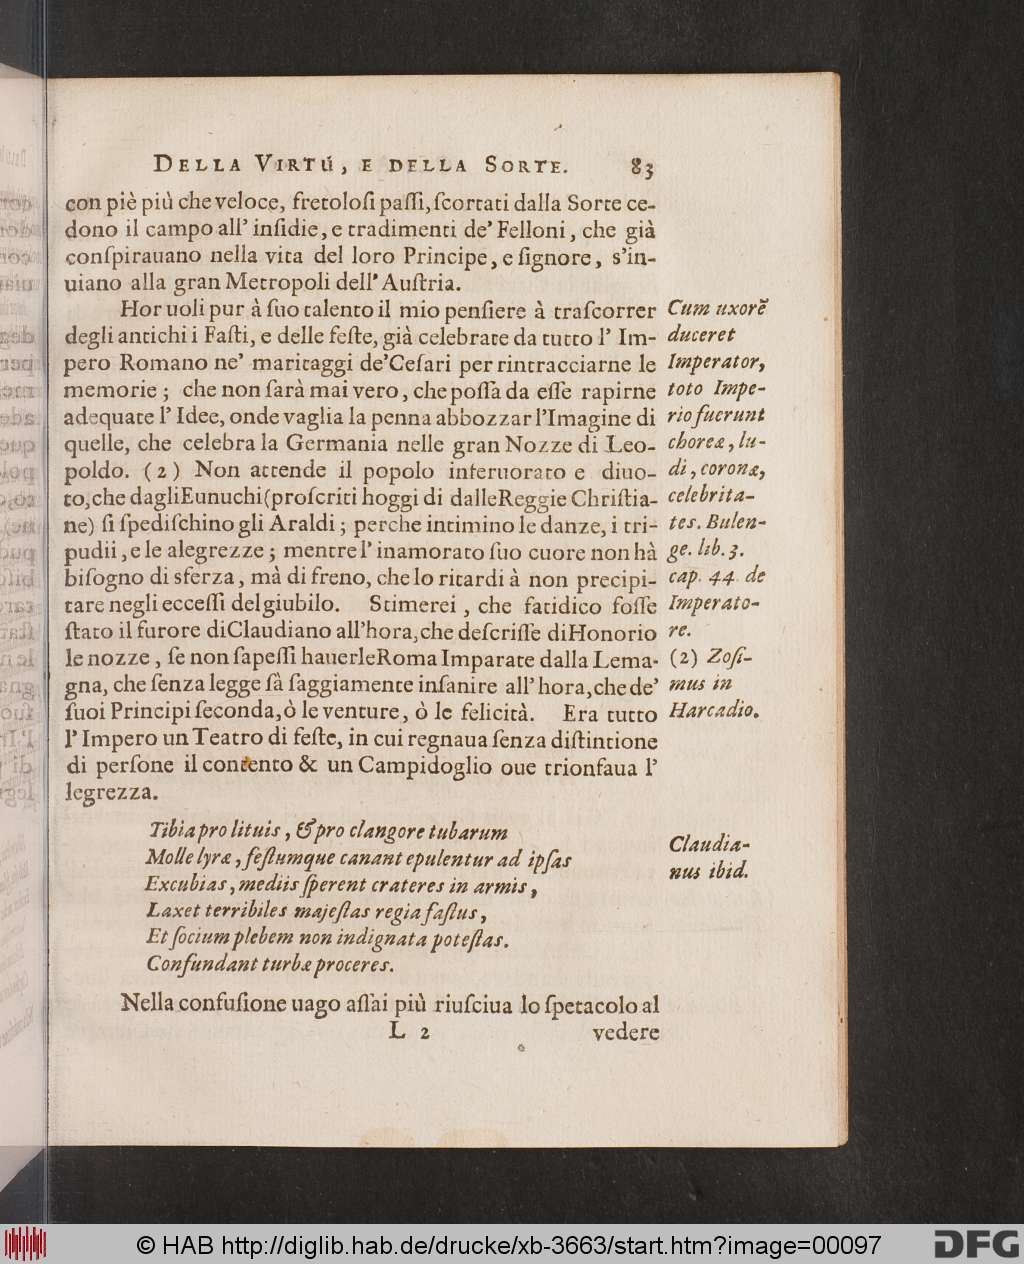 DELLA VIRTÚ, E DELLA SORTE. 83
con piè più che veloce, fretolosi passi, scortati dalla Sorte ce-
dono il campo all' insidie, e tradimenti de' Felloni, che già
conspirauano nella vita del loro Principe, e signore, s'in-
uiano alla gran Metropoli dell' Austria.
Hor uoli pur à suo talento il mio pensiere à trascorrer
degli antichi i Fasti, e delle feste, già celebrate da tutto l' Im-
pero Romano ne' maritaggi de'Cesari per rintracciarne le
memorie; che non sarà mai vero, che possa da esse rapirne
adequate l' Idee, onde vaglia la penna abbozzar l'Imagine di
quelle, che celebra la Germania nelle gran Nozze di Leo-
poldo. (2) Non attende il popolo inferuorato e diuo-
to, che dagli Eunuchi (proscriti hoggi di dalle Reggie Christia-
ne) si spedischino gli Araldi; perche intimino le danze, i tri-
pudii, e le alegrezze; mentre l' inamorato suo cuore non hà
bisogno di sferza, mà di freno, che lo ritardi à non precipi-
tare negli eccessi del giubilo. Stimerei, che fatidico fosse
stato il furore di Claudiano all'hora, che descrisse di Honorio
le nozze, se non sapessi hauerle Roma Imparate dalla Lema-
gna, che senza legge sà saggiamente insanire all' hora, che de'
suoi Principi seconda, ò le venture, ò le felicità. Era tutto
l' Impero un Teatro di feste, in cui regnaua senza distintione
di persone il contento & un Campidoglio oue trionfaua l'
legrezza.
Cum uxorē
duceret
Imperator,
toto Impe-
rio fuerunt
choreæ, lu-
di, coronæ,
celebrita-
tes. Bulen-
ge. lib. 3.
cap. 44. de
Imperato-
re.
(2) Zosi-
mus in
Harcadio.
Tibia pro lituis, & pro clangore tubarum
Molle lyræ, festumque canant epulentur ad ipsas
Excubias, mediis sperent crateres in armis,
Laxet terribiles majestas regia fastus,
Et socium plebem non indignata potestas.
Confundant turbæ proceres.
Claudia-
nus ibid.
Nella confusione uago assai più riusciua lo spetacolo al
L 2 vedere
© HAB http://diglib.hab.de/drucke/xb-3663/start.htm?image=00097
DFG